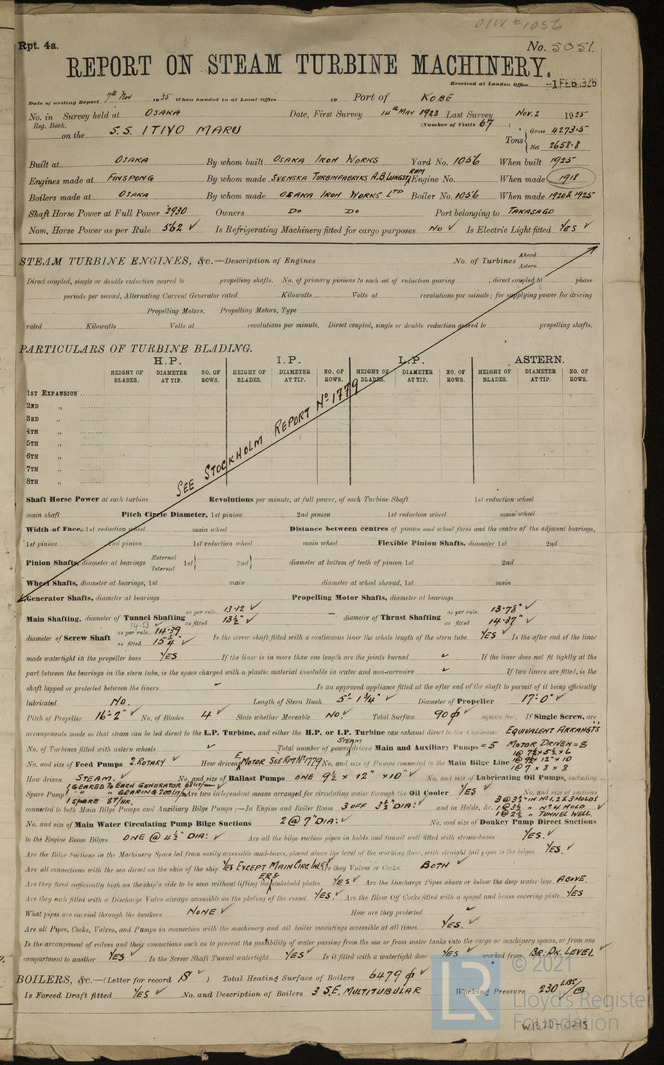 O/W #1056
Rpt. 4a.
No. 5051.
REPORT ON STEAM TURBINE MACHINERY.
Received at London Office -1 FEB 1926
Date of writing Report 7th Nov 1925 When handed in at Local Office 19 Port of KOBE
No. in Survey held at OSAKA Date, First Survey 14th MAY 1923 Last Survey NOV. 2 1925
Reg. Book. (Number of Visits 67)
on the S.S. ITIYO MARU Tons { Gross 4273.5
Net 2658.8
Built at OSAKA By whom built OSAKA IRON WORKS Yard No. 1056 When built 1925
Engines made at FINSPONG By whom made SVENSKA TURBINFABRIKS A.B. LJUNGSTROM Engine No. When made 1918
Boilers made at OSAKA By whom made OSAKA IRON WORKS LTD Boiler No. 1056 When made 1920 & 1925
Shaft Horse Power at Full Power 3930 Owners Do Do Port belonging to TAKASAGO
Nom. Horse Power as per Rule 562 ✓ Is Refrigerating Machinery fitted for cargo purposes No ✓ Is Electric Light fitted YES ✓
STEAM TURBINE ENGINES, &c.—Description of Engines No. of Turbines Ahead
Astern
Direct coupled, single or double reduction geared to propelling shafts. No. of primary pinions to each set of reduction gearing , direct coupled to phase
periods per second, Alternating Current Generator rated Kilowatts Volts at revolutions per minute; for supplying power for driving
Propelling Motors. Propelling Motors, Type
rated Kilowatts Volts at revolutions per minute. Direct coupled, single or double reduction geared to propelling shafts.
PARTICULARS OF TURBINE BLADING.
H.P. I.P. L.P. ASTERN.
HEIGHT OF BLADES. DIAMETER AT TIP. NO. OF ROWS. HEIGHT OF BLADES. DIAMETER AT TIP. NO. OF ROWS. HEIGHT OF BLADES. DIAMETER AT TIP. NO. OF ROWS. HEIGHT OF BLADES. DIAMETER AT TIP. NO. OF ROWS.
1ST EXPANSION
2ND „
3RD „
4TH „
5TH „
6TH „
7TH „
8TH „
SEE STOCKHOLM REPORT No 1779
Shaft Horse Power at each turbine Revolutions per minute, at full power, of each Turbine Shaft 1st reduction wheel
main shaft Pitch Circle Diameter, 1st pinion 2nd pinion 1st reduction wheel main wheel
Width of Face, 1st reduction wheel main wheel Distance between centres of pinion and wheel faces and the centre of the adjacent bearings,
1st pinion 2nd pinion 1st reduction wheel main wheel Flexible Pinion Shafts, diameter 1st 2nd
Pinion Shafts, diameter at bearings External Internal 1st 2nd diameter at bottom of teeth of pinion 1st 2nd
Wheel Shafts, diameter at bearings, 1st main diameter at wheel shroud, 1st main
Generator Shafts, diameter at bearings Propelling Motor Shafts, diameter at bearings
Main Shafting, diameter of Tunnel Shafting as per rule 13.12 ✓ as fitted 13½" ✓ diameter of Thrust Shafting as per rule 13.78" ✓ as fitted 14.37" ✓
diameter of Screw Shaft as per rule 14.39 as fitted 15¼ ✓ Is the screw shaft fitted with a continuous liner the whole length of the stern tube YES ✓ Is the after end of the liner
made watertight in the propeller boss YES If the liner is in more than one length are the joints burned ✓ If the liner does not fit tightly at the
part between the bearings in the stern tube, is the space charged with a plastic material insoluble in water and non-corrosive ✓ If two liners are fitted, is the
shaft lapped or protected between the liners ✓ Is an approved appliance fitted at the after end of the shaft to permit of it being efficiently
lubricated No. Length of Stern Bush 5'-1¾" ✓ Diameter of Propeller 17'-0" ✓
Pitch of Propeller 16'-2" ✓ No. of Blades 4 ✓ State whether Moveable No ✓ Total Surface 90 ✓ square feet. If Single Screw, are
arrangements made so that steam can be led direct to the L.P. Turbine, and either the H.P. or I.P. Turbine can exhaust direct to the Condenser EQUIVALENT ARRANGTS
No. of Turbines fitted with astern wheels ✓ Total number of STEAM power driven Main and Auxiliary Pumps = 5 MOTOR DRIVEN = 8
No. and size of Feed Pumps 2 ROTARY ✓ How driven MOTOR SEE RPT No 1779 No. and size of Pumps connected to the Main Bilge Line
How driven STEAM. ✓ No. and size of Ballast Pumps ONE 9½ x 12" x 10" ✓ No. and size of Lubricating Oil Pumps, including
Spare Pump Are two independent means arranged for circulating water through the Oil Cooler YES ✓
connected to both Main Bilge Pumps and Auxiliary Bilge Pumps;—In Engine and Boiler Room 3 OFF 3½" DIA: ✓ and in Holds, &c.
No. and size of Main Water Circulating Pump Bilge Suctions 2 @ 7" DIA: ✓ No. and size of Donkey Pump Direct Suctions
to the Engine Room Bilges ONE @ 4½" DIA: ✓ Are all the bilge suction pipes in holds and tunnel well fitted with strum-boxes YES. ✓
Are the Bilge Suctions in the Machinery Space led from easily accessible mud-boxes, placed above the level of the working floor, with straight tail pipes to the bilges YES. ✓
Are all connections with the sea direct on the skin of the ship YES EXCEPT MAIN CIRC INLET Are they Valves or Cocks BOTH ✓
Are they fixed sufficiently high on the ship's side to be seen without lifting the stokehold plates YES ✓ Are the Discharge Pipes above or below the deep water line ABOVE.
Are they each fitted with a Discharge Valve always accessible on the plating of the vessel YES. ✓ Are the Blow Off Cocks fitted with a spigot and brass covering plate YES
What pipes are carried through the bunkers NONE ✓ How are they protected ✓
Are all Pipes, Cocks, Valves, and Pumps in connection with the machinery and all boiler mountings accessible at all times YES. ✓
Is the arrangement of valves and their connections such as to prevent the possibility of water passing from the sea or from water tanks into the cargo or machinery spaces, or from one
compartment to another YES ✓ Is the Screw Shaft Tunnel watertight YES ✓ Is it fitted with a watertight door YES ✓ worked from BR. DK. LEVEL ✓
BOILERS, &c.—(Letter for record S ✓ ) Total Heating Surface of Boilers 6479 ✓
Is Forced Draft fitted YES ✓ No. and Description of Boilers 3 S.E. MULTITUBULAR Working Pressure 230 LBS/
© 2021
LR
Lloyd's Register
Foundation
W1320-0215